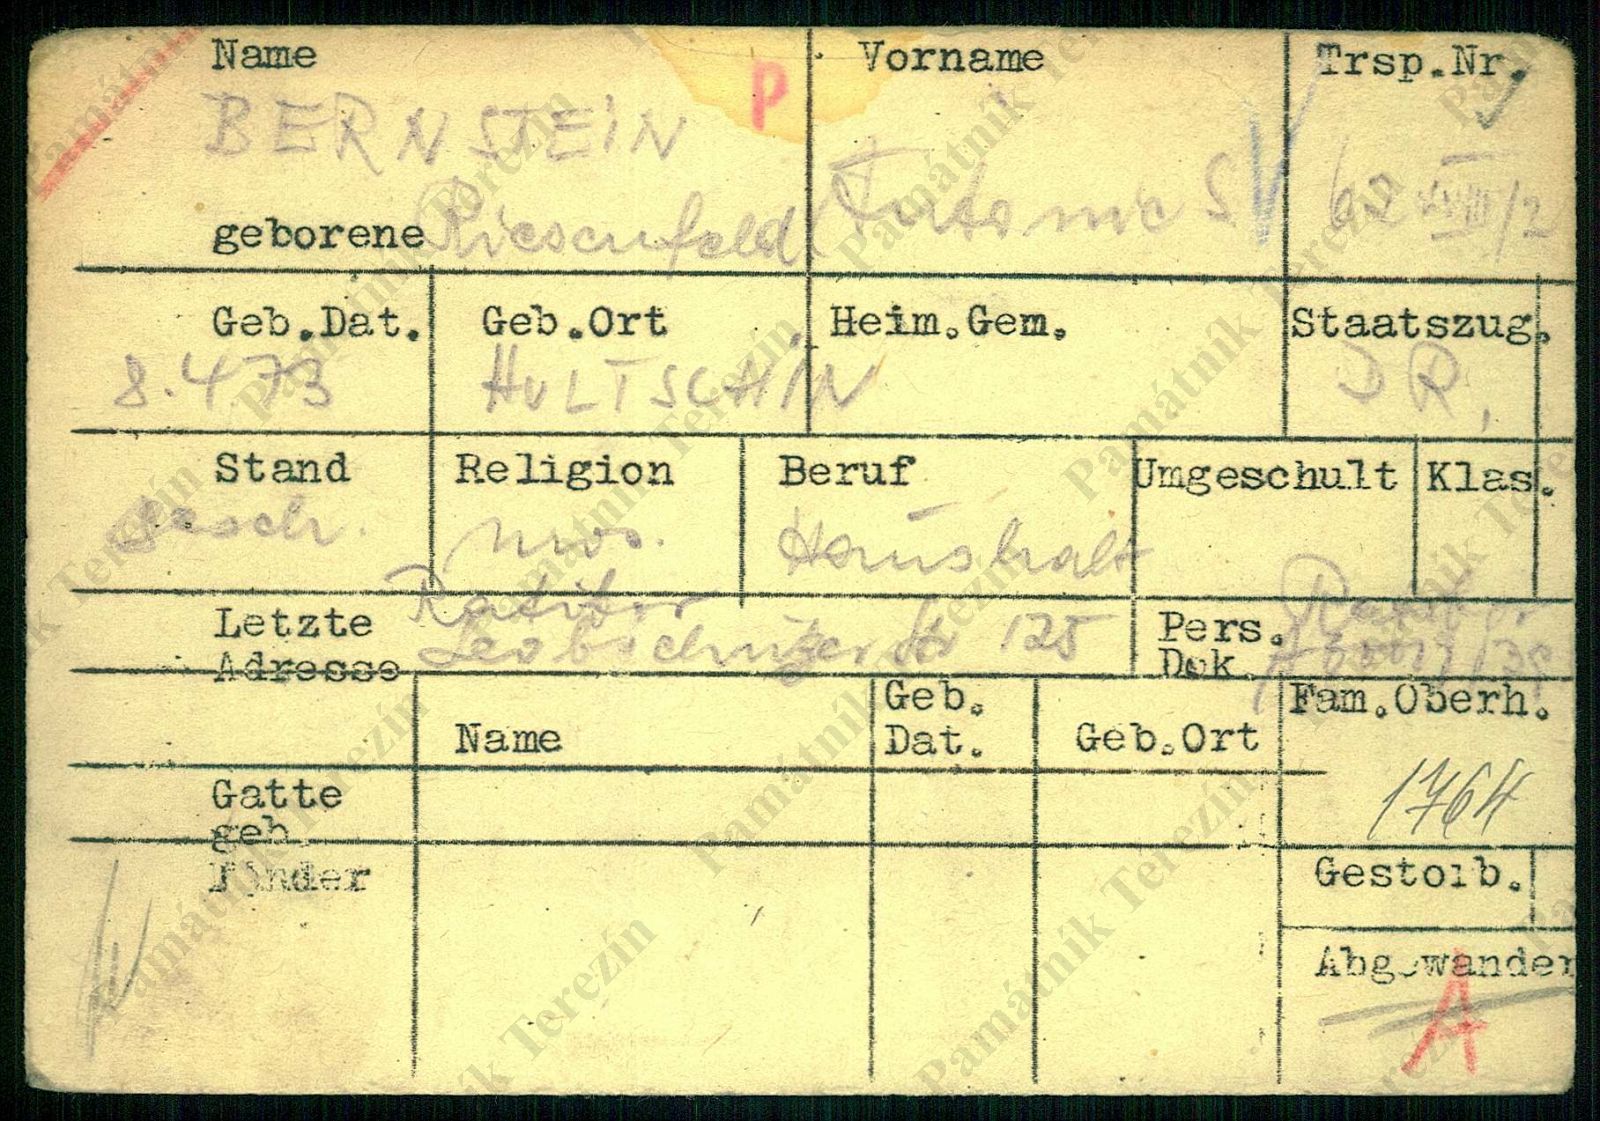 Name
P
Vorname
Trsp.Nr.
BERNSTEIN
geborene Riesenfeld
Antonie S
62 XVIII/2
Geb.Dat.
Geb.Ort
Heim.Gem.
Staatszug.
8.4 73
HULTSCHIN
DR,
Stand
Religion
Beruf
Umgeschult
Klas.
Gesch.
mos.
Haushalt
Letzte
Adresse
Ratibor
Leobschützer Str 125
Pers.
Dok.
Ratib.
Name
Geb.
Dat.
Geb.Ort
Fam.Oberh.
1764
Gatte
geb.
Kinder
Gestorb.
Abgewander
A
Památník Terezín